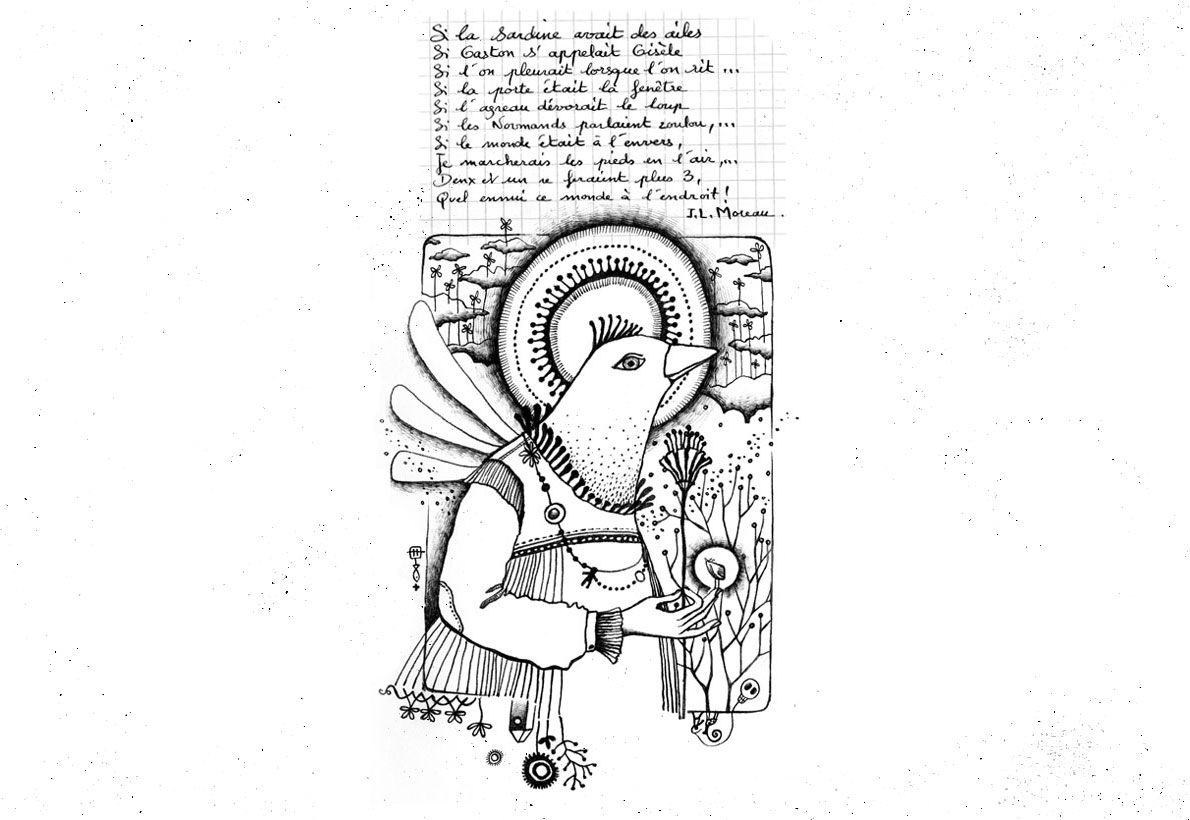 Si la Sardine avait des ailes
Si Gaston s'appelait Gisèle
Si l'on pleurait lorsque l'on rit ...
Si la porte était la fenêtre
Si l'agneau dévorait le loup
Si les Normands parlaient zoulou,...
Si le monde était à l'envers,
Je marcherais les pieds en l'air,...
Deux et un ne feraient plus 3,
Quel ennui ce monde à l'endroit!
J.L. Moreau.